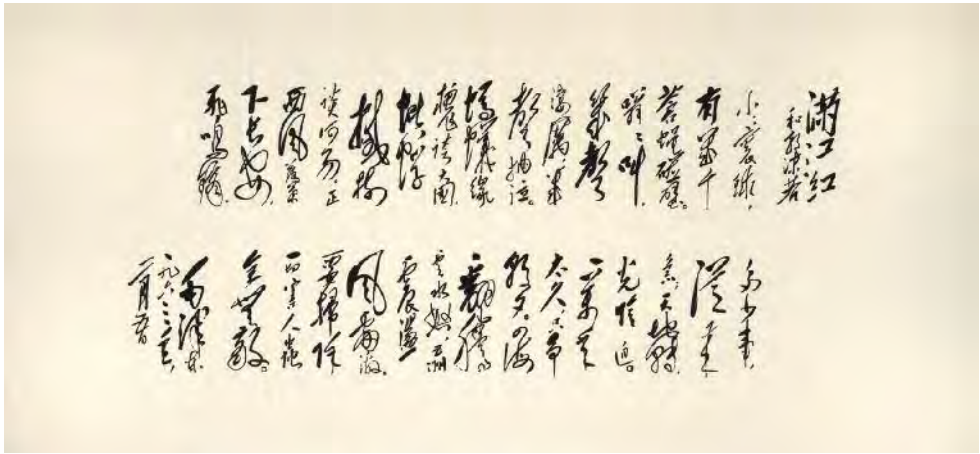 滿江红
和郭沫若
小小寰球，
有几个
苍蝇碰壁。
嗡嗡叫，
几声
凄厉，几
声抽泣。
蚂蟻缘
槐誇大國，
蚍蜉
撼树
谈何易。正
西风落葉
下长安，
飛鸣镝。
多少事，
從来
急；天地转，
光阴迫。
一萬年
太久，只争
朝夕。四海
翻腾
雲水怒，五洲
震盪
风雷激。
要扫除
一切害人蟲
全無敌。
毛泽东
一九六三年